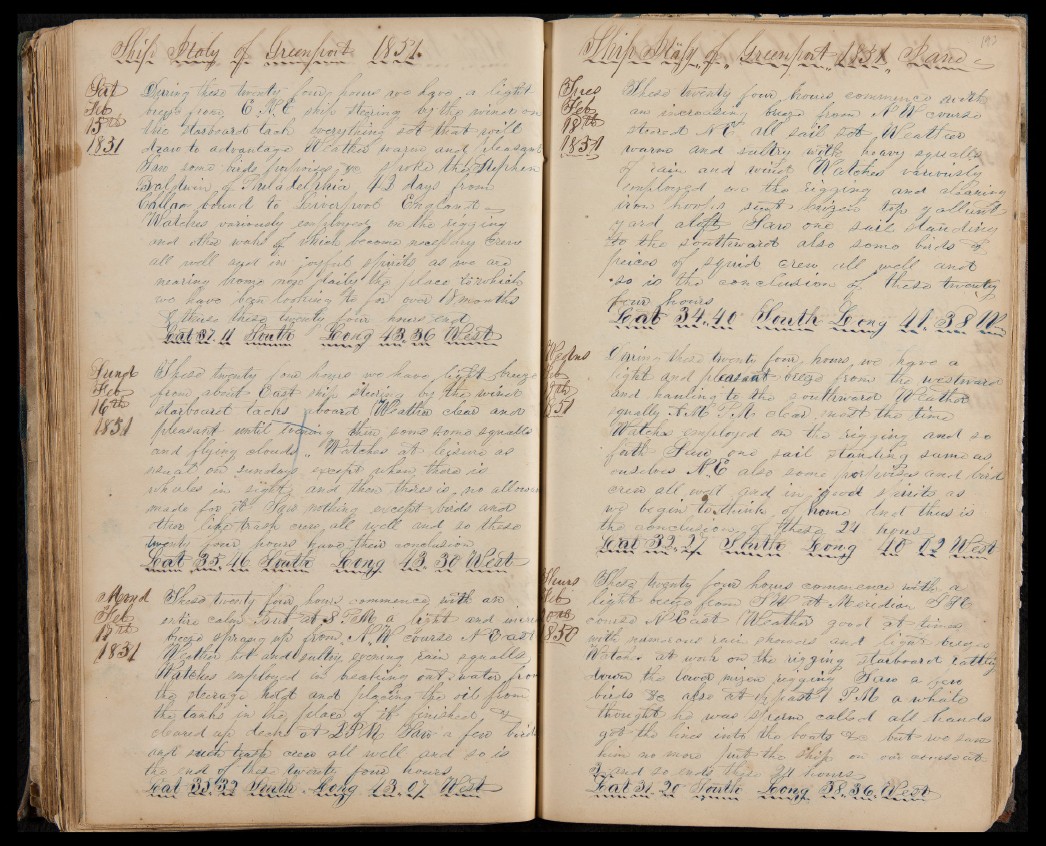 Ship Italy of Greenport 1851
Sat
Feb
15th
1851
During these twenty four hours we have a light
breeze from E.N.E. ship steering by the wind on
the starboard tack everything set that will
draw to advantage Weather warm and pleasant
Saw some birds porpoises &c spoke the Stephen
Baldwin of Philadelphia 43 days from
Callao bound to Liverpool England
Watches variously employed on the rigging
and other works of which become necessary Crew
all well and in joyful spirits as we are
nearing home
we have been looking to for over 18 months
these twenty four hours end
Lat 37.11 South Long 43.36 West
Sund
Feb
16th
1851
These twenty four hours we have light breeze
from about East ship steering by the wind
starboard tacks aboard Weather clear and
pleasant until evening then some squalls
and flying clouds Watches at leisure as
usual on sundays except when there is
whales in sight and then there is no allow
made for it Saw nothing except birds and
other like trash crew all well and so these
twenty four hours have their conclusion
Lat 35.46 South Long 43.30 West
Mond
Feb
17th
1851
These twenty four hours commence with an
entire calm but at 8 P.M. a light and
breeze sprang up from N.W. course N East
Weather hot and sultry evening rain squalls
Watches employed in breaking out water from
the steerage hold and placing the oil from
the tanks in the place of it finished &
cleared up decks at 2 P.M. Saw a few birds
and such trash crew all well and so is
the end of these twenty four hours
Lat 35.32 South Long 43.07 West
Ship Italy of Greenport 1851
193
Tues
Feb
18th
1851
These twenty four hours commence with
an increasing breeze from N.W. course
steered N.E. all sail set Weather
warm and sultry with heavy squalls
of rain and wind Watches variously
employed on the rigging and cleaning
iron hoops sent mizen top gallant
yard aloft Saw one sail standing
to the southward also some birds &
peices of squid Crew all well and
so is the conclusion of these twenty
four hours
Lat 34.40 South Long 41.38 W
Wedns
Feb
19th
1851
During these twenty four hours we have a
light and pleasant breeze from the westward
and hauling to the southward Weather
squally A.M. P.M. clear most the time
Watches employed on the rigging and so
forth Saw one sail standing same as
ourselves N.E. also some porpoises and birds
crew all well and in good spirits as
we begin to think of home And thus is
the conclusion of these 24 hours
Lat 32.27 South Long 40.12 West
Thurs
Feb
20th
1850
These twenty four hours commence with a
light breeze from S.W. at Meridian S.S.E.
course N East Weather good at times
with numerous rain showers and light breezes
Watches at work on the rigging starboard rattling
down the lower mizen rigging Saw a few
birds &c also at past 1 P.M. a whale
thought he was Sperm called all hands
got the lines into the boats &c but we saw
him no more put the Ship on our course at
2 and so ends these 24 hours
Lat 31.20 South Long 38.36 West